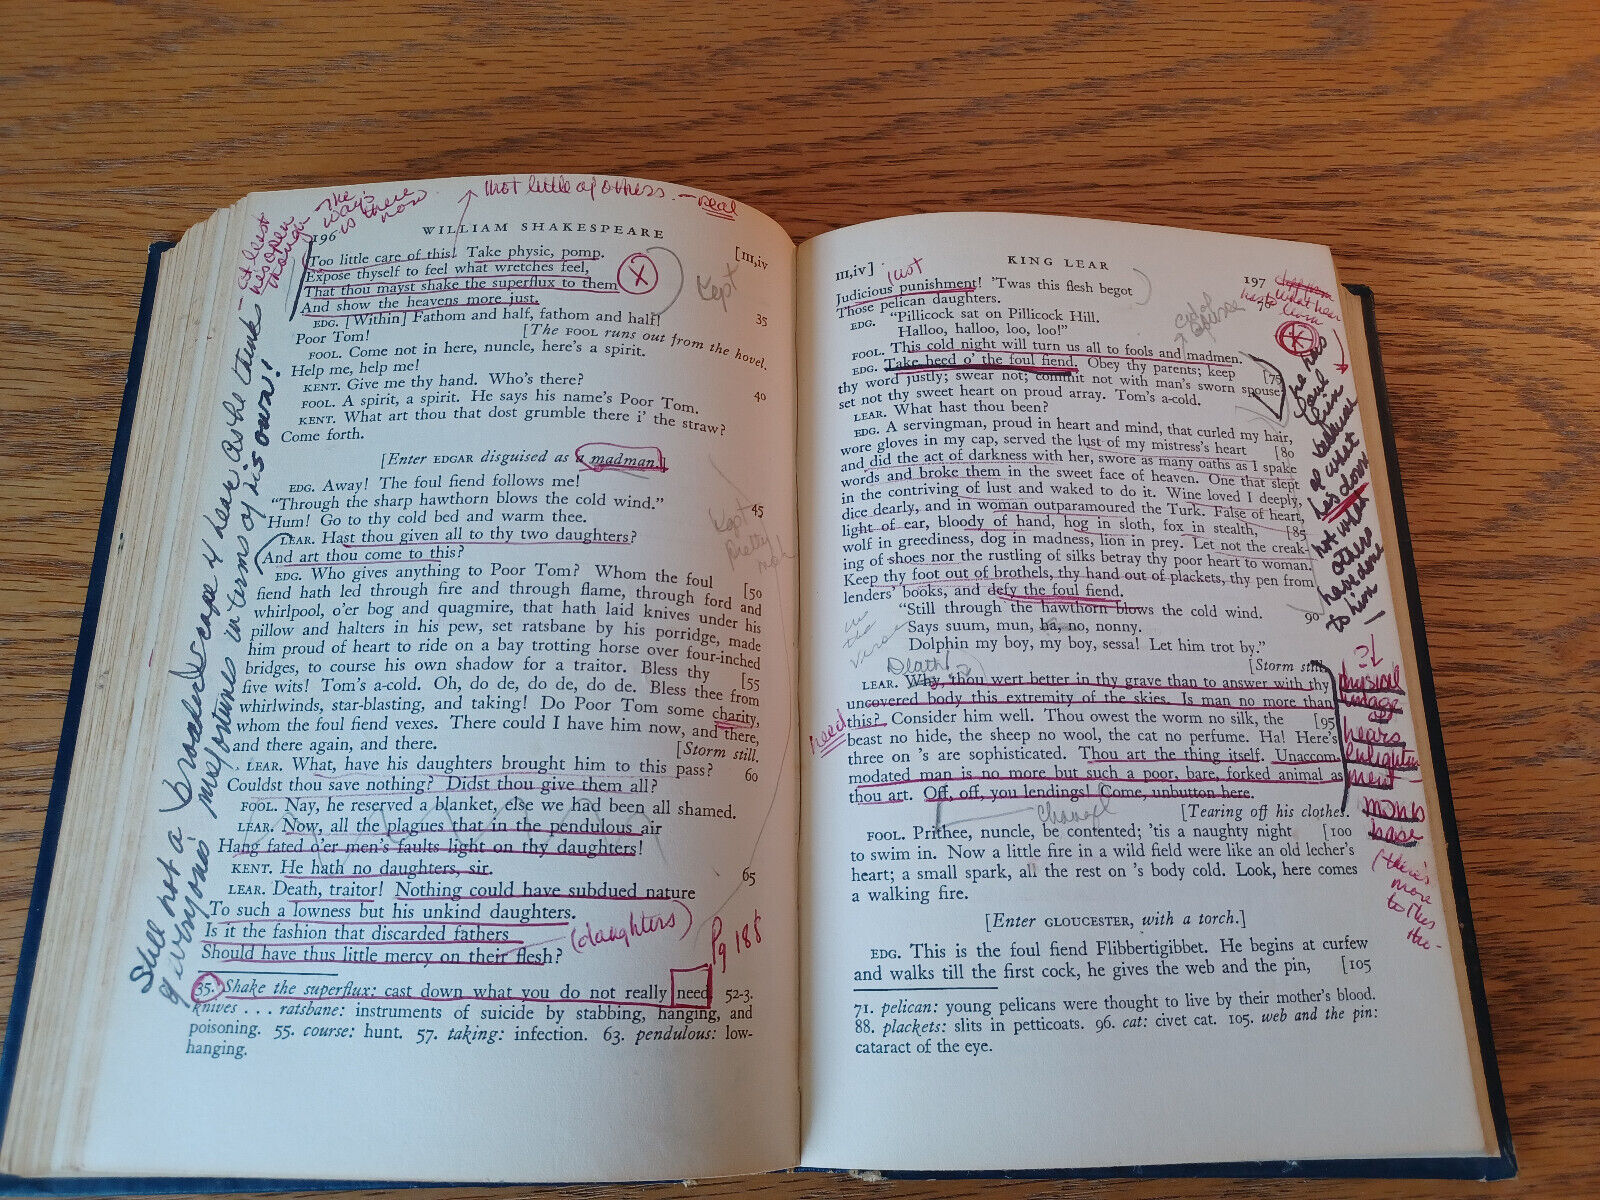 that little of others. — real
The
way
is there
now
at least
he's open
though
196 WILLIAM SHAKESPEARE [III,iv
Too little care of this! Take physic, pomp.
Expose thyself to feel what wretches feel,
That thou mayst shake the superflux to them
And show the heavens more just.
Kept
EDG. [Within] Fathom and half, fathom and half! 35
Poor Tom! [The FOOL runs out from the hovel.
FOOL. Come not in here, nuncle, here's a spirit.
Help me, help me!
KENT. Give me thy hand. Who's there?
FOOL. A spirit, a spirit. He says his name's Poor Tom. 40
KENT. What art thou that dost grumble there i' the straw?
Come forth.
[Enter EDGAR disguised as a madman.]
EDG. Away! The foul fiend follows me!
"Through the sharp hawthorn blows the cold wind."
Hum! Go to thy cold bed and warm thee. 45
LEAR. Hast thou given all to thy two daughters?
And art thou come to this?
Kept
pretty
much
EDG. Who gives anything to Poor Tom? Whom the foul
fiend hath led through fire and through flame, through ford and [50
whirlpool, o'er bog and quagmire, that hath laid knives under his
pillow and halters in his pew, set ratsbane by his porridge, made
him proud of heart to ride on a bay trotting horse over four-inched
bridges, to course his own shadow for a traitor. Bless thy
five wits! Tom's a-cold. Oh, do de, do de, do de. Bless thee from [55
whirlwinds, star-blasting, and taking! Do Poor Tom some charity,
whom the foul fiend vexes. There could I have him now, and there,
and there again, and there. [Storm still.
LEAR. What, have his daughters brought him to this pass? 60
Couldst thou save nothing? Didst thou give them all?
FOOL. Nay, he reserved a blanket, else we had been all shamed.
LEAR. Now, all the plagues that in the pendulous air
Hang fated o'er men's faults light on thy daughters!
KENT. He hath no daughters, sir. 65
LEAR. Death, traitor! Nothing could have subdued nature
To such a lowness but his unkind daughters.
Is it the fashion that discarded fathers
Should have thus little mercy on their flesh?
(daughters)
Pg 188
35. Shake the superflux: cast down what you do not really need. 52-3.
knives . . . ratsbane: instruments of suicide by stabbing, hanging, and
poisoning. 55. course: hunt. 57. taking: infection. 63. pendulous: low-
hanging.
Still not a broad scape of hear as he thinks
of everyone's misfortunes in terms of his own!
III,iv] KING LEAR 197
just
Judicious punishment! 'Twas this flesh begot
Those pelican daughters.
EDG. "Pillicock sat on Pillicock Hill.
Halloo, halloo, loo, loo!"
FOOL. This cold night will turn us all to fools and madmen.
EDG. Take heed o' the foul fiend. Obey thy parents; keep
thy word justly; swear not; commit not with man's sworn spouse; [75
set not thy sweet heart on proud array. Tom's a-cold.
LEAR. What hast thou been?
EDG. A servingman, proud in heart and mind, that curled my hair,
wore gloves in my cap, served the lust of my mistress's heart [80
and did the act of darkness with her, swore as many oaths as I spake
words and broke them in the sweet face of heaven. One that slept
in the contriving of lust and waked to do it. Wine loved I deeply,
dice dearly, and in woman outparamoured the Turk. False of heart,
light of ear, bloody of hand, hog in sloth, fox in stealth, [85
wolf in greediness, dog in madness, lion in prey. Let not the creak-
ing of shoes nor the rustling of silks betray thy poor heart to woman.
Keep thy foot out of brothels, thy hand out of plackets, thy pen from
lenders' books, and defy the foul fiend.
"Still through the hawthorn blows the cold wind. 90
Says suum, mun, ha, no, nonny.
Dolphin my boy, my boy, sessa! Let him trot by."
[Storm still.
Death
LEAR. Why, thou wert better in thy grave than to answer with thy
uncovered body this extremity of the skies. Is man no more than
this? Consider him well. Thou owest the worm no silk, the [95
beast no hide, the sheep no wool, the cat no perfume. Ha! Here's
three on 's are sophisticated. Thou art the thing itself. Unaccom-
modated man is no more but such a poor, bare, forked animal as
thou art. Off, off, you lendings! Come, unbutton here.
need
change
[Tearing off his clothes.
FOOL. Prithee, nuncle, be contented; 'tis a naughty night [100
to swim in. Now a little fire in a wild field were like an old lecher's
heart; a small spark, all the rest on 's body cold. Look, here comes
a walking fire.
[Enter GLOUCESTER, with a torch.]
EDG. This is the foul fiend Flibbertigibbet. He begins at curfew
and walks till the first cock, he gives the web and the pin, [105
71. pelican: young pelicans were thought to live by their mother's blood.
88. plackets: slits in petticoats. 96. cat: civet cat. 105. web and the pin:
cataract of the eye.
he has
foul
because
of what
he's done
not what
others
have done
to him
physical
image
lears
enlighten
ment
man's
base
(there's
more
to this